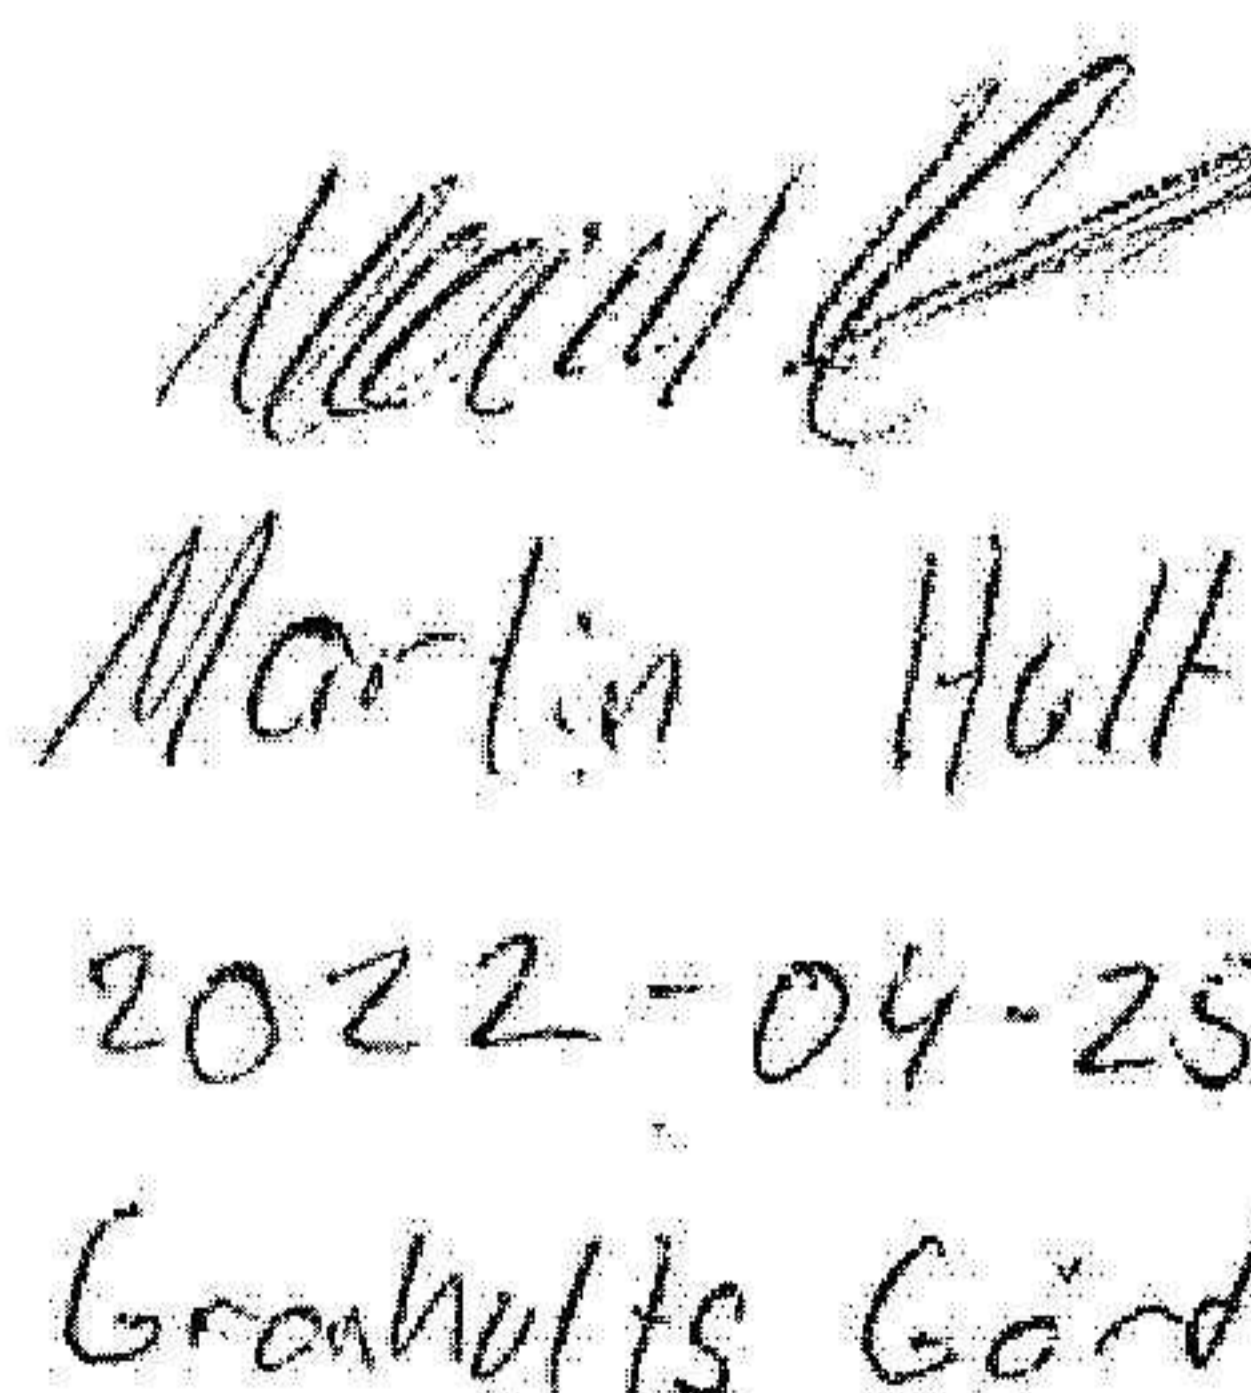 Martin Hult
2022-04-25
Granhults Gård